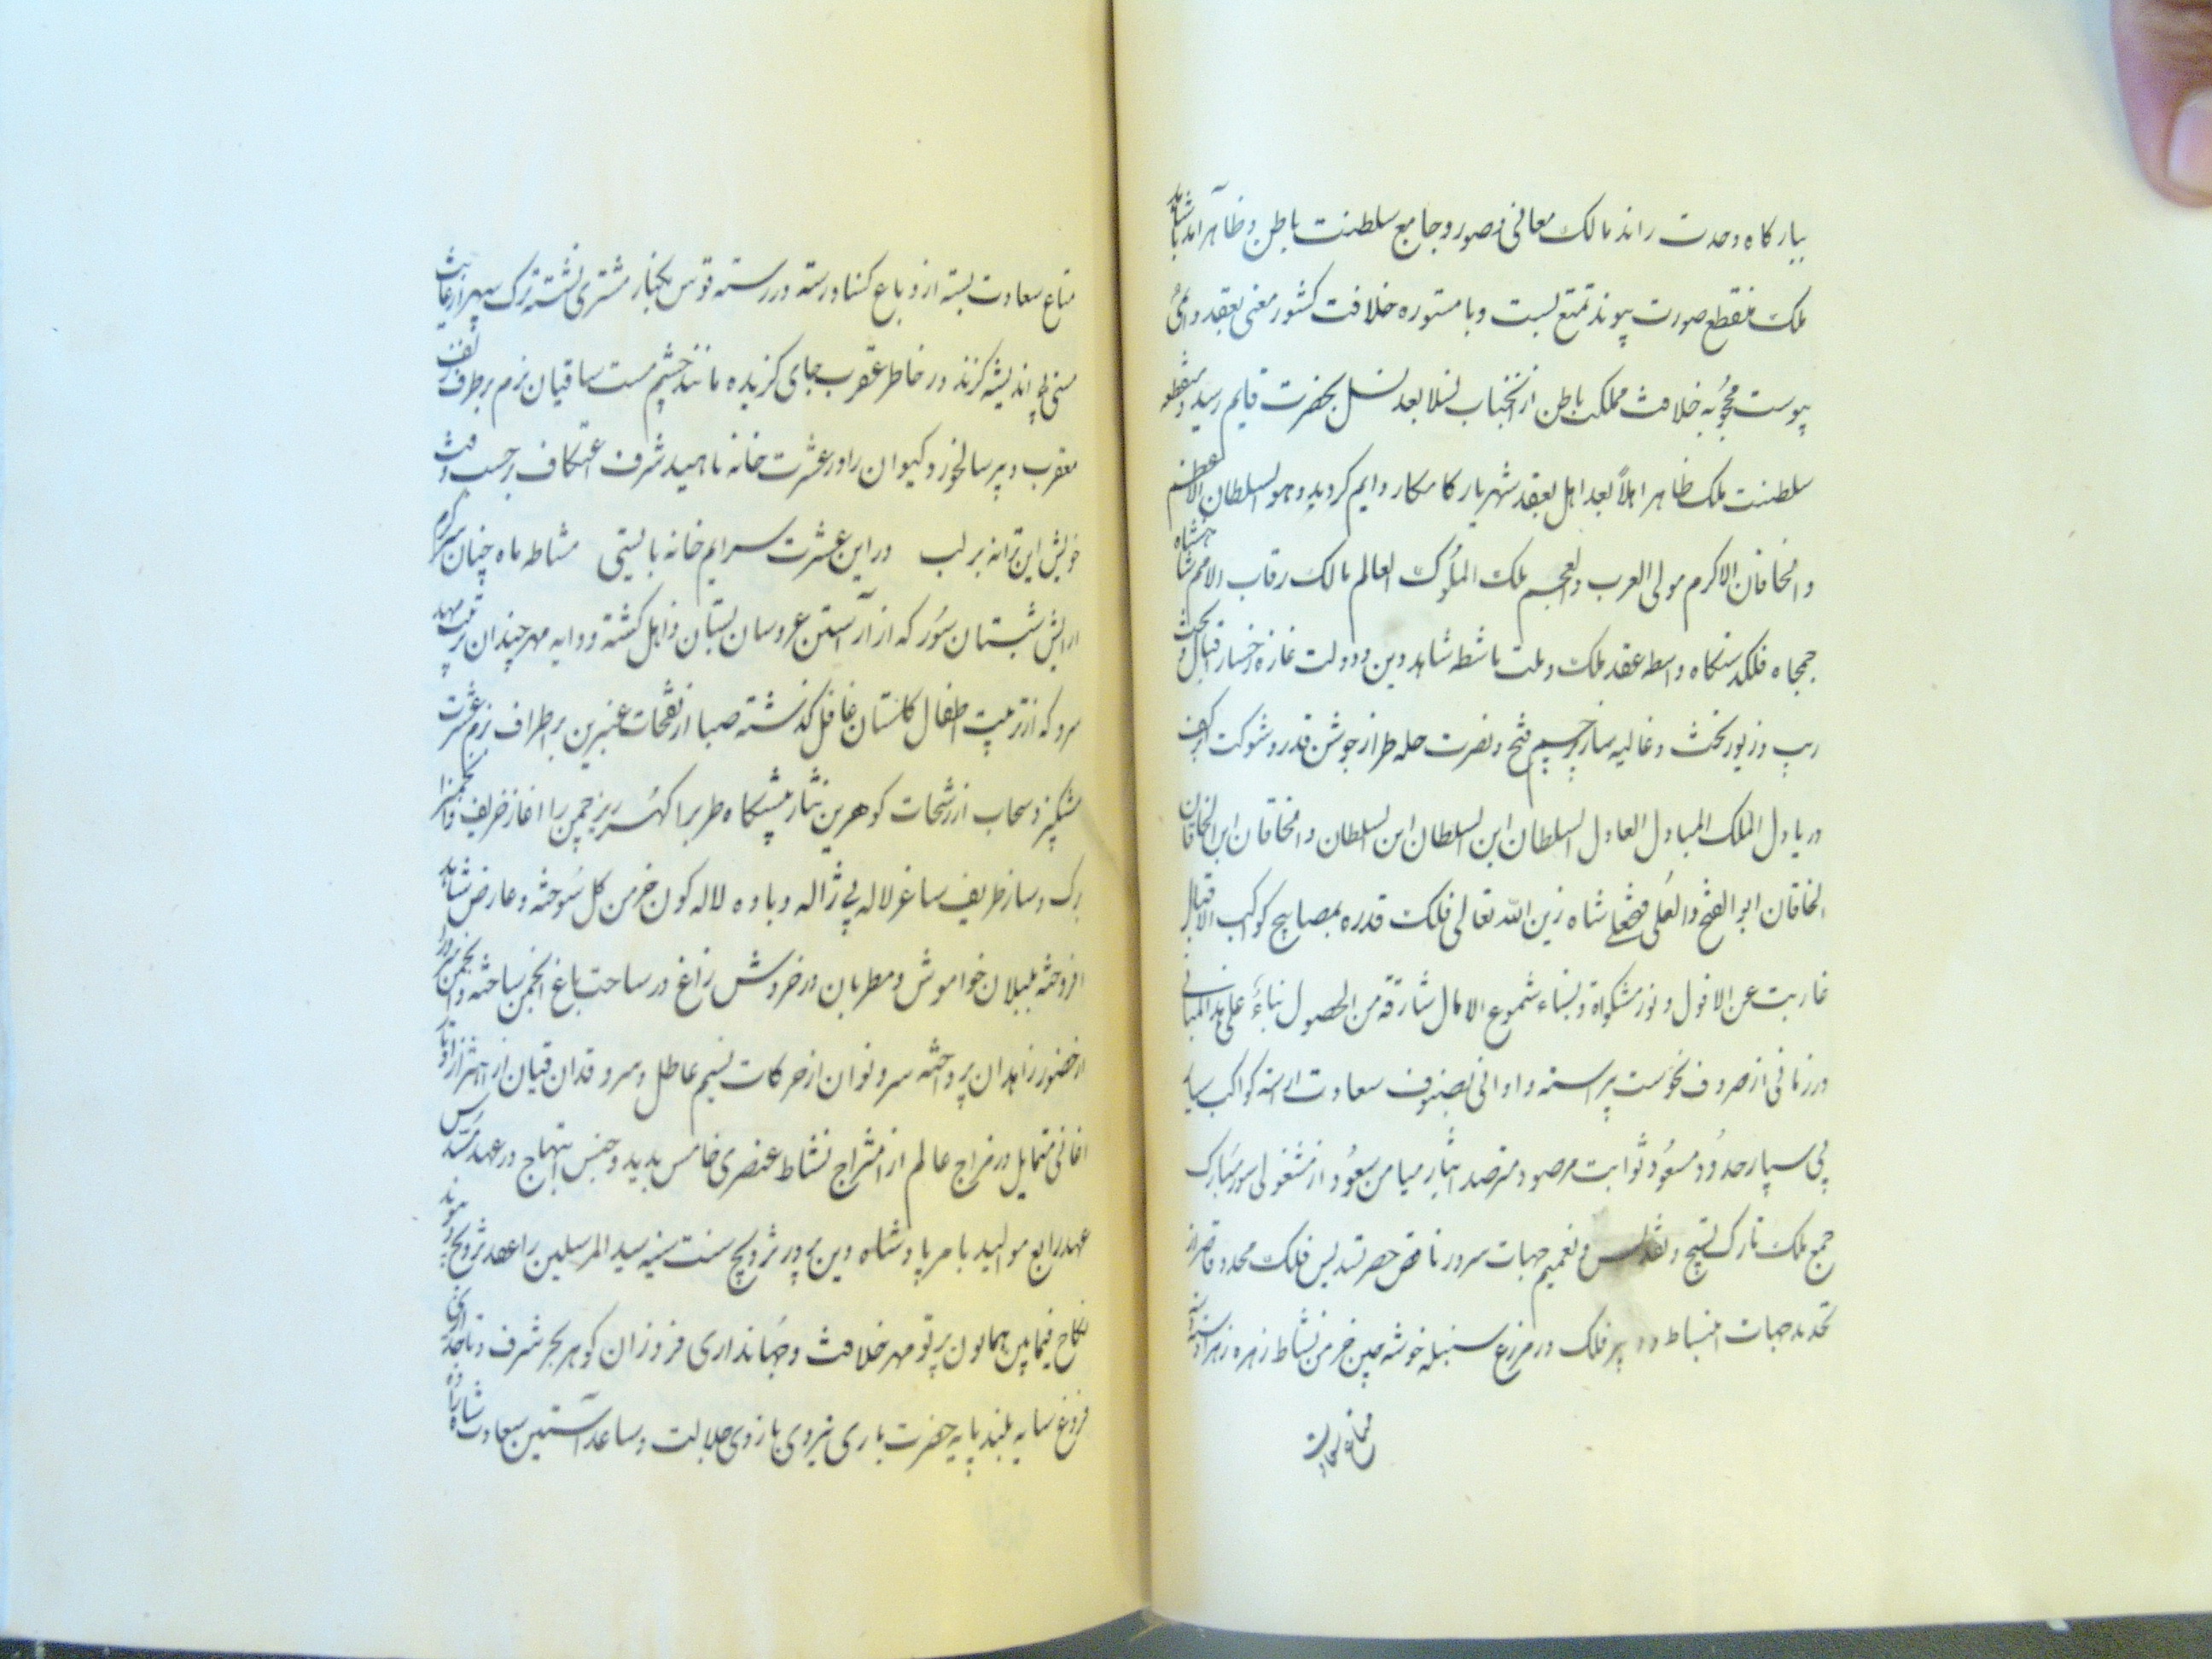 ببارکاه وحدت راند مالک معانی و صور و جامع سلطنت باطن و ظاهر آمد با شاهد
ملک منقطع صورت پیوند تمتع بست و با مستوره خلافت کشور معنی بعقد دایمی
پیوست محجوبه خلافت مملکت باطن از انجناب نسلا بعد نسل بحضرت قایم رسید و منقطعه
سلطنت ملک ظاهر اهلاً بعد اهل بعقد شهریار کامکار دایم کردید و هو السلطان الاعظم
و الخاقان الاکرم مولی العرب و العجم ملک الملوک العالم مالک رقاب الامم شاهنشاه
جمجاه فلکدستکاه واسطه عقد ملک و ملت ماشطه شاهد دین و دولت غازه رخسار اقبال و بخت
زیب و زیور تخت و غالیه ساز پرچم فتح و نصرت حله طراز جوشن قدر و شوکت
دریادل الملک الباذل العادل السلطان ابن السلطان ابن السلطان و الخاقان ابن الخاقان
الخاقان ابو الفتح و العلی فتحعلی شاه زین الله تعالی فلک قدره بمصابیح کواکب الاقبال
غاربت عن الافول و نور مشکواة و بسناء شموع الامال شارقة من الحصول بناءً علی هذا المبانی
در زمانی از صروف نحوست پیراسته و اوانی بصنوف سعادت اراسته کواکب سیار
پی سپار حدود مسعود ثوابت مرصود مترصد ایثار میامن سعود از مشغولی سور مبارک
جمع ملک تارک تسبیح و تقدیس و تعمیم جهات سرور ناقض حصر تسدیس فلک محدد قاصر از
تحدید جهات انبساط دبیر فلک در مزرع سنبله خوشه چین خرمن نشاط زهره زهرا
متاع سعادت بسته از و باع کشاد رسته در رسته قوس بکنار مشتری نشسته ترک سپهر از غایت
اندیشه کزند در خاطر عقرب جای کزیده مانند چشم مست ساقیان بزم بر طرف
معقرب و پیر سالخورد کیوان را در عشرت خانه ناهید شرف اعتکاف بر حسب وقت
خویش این ترانه بر لب در این عشرت سرایم خانه بایستی مشاطه ماه چنان سرکرم
ارایش شبستان سور که از آراستن عروسان بستان ذاهل کشته و دایه مهر چندان
سرو که از تربیت اطفال کلستان غافل کذشته صبا از نفحات عنبرین بر اطراف بزم عشرت
مشکبیز و سحاب از رشحات کوهرین نثار پیشکاه طرب را کهرریز چمن را اغاز خریف و انجمن را
برک و ساز ظریف ساغر لاله بی ژاله و باده لاله کون خرمن کل سوخته و عارض شاهد
افروخته بلبلان خواموش و مطربان در خروش زاغ در ساحت باغ انجمن ساخته و انجمن سرور
از حضور زاهدان پرداخته سرو نوان از حرکات نسیم عاطل و سرو قدان قیان از اهتزاز اوتار
اغانی متمایل در مزاج عالم از امتزاج نشاط عنصری خامس پدید و جنس ابتهاج در عهد
عهد رابع موالید بامر پادشاه دین پرور ترویج سنت سنیه سید المرسلین را عقد تزویج و پیوند
نکاح فیمابین همایون پرتو مهر خلافت و جهانداری فروزان کوهر بحر شرف و تاجداری
فروغ سایه بلند پایه حضرت باری نیروی بازوی جلالت و ساعد آستین سعادت شاهزاده